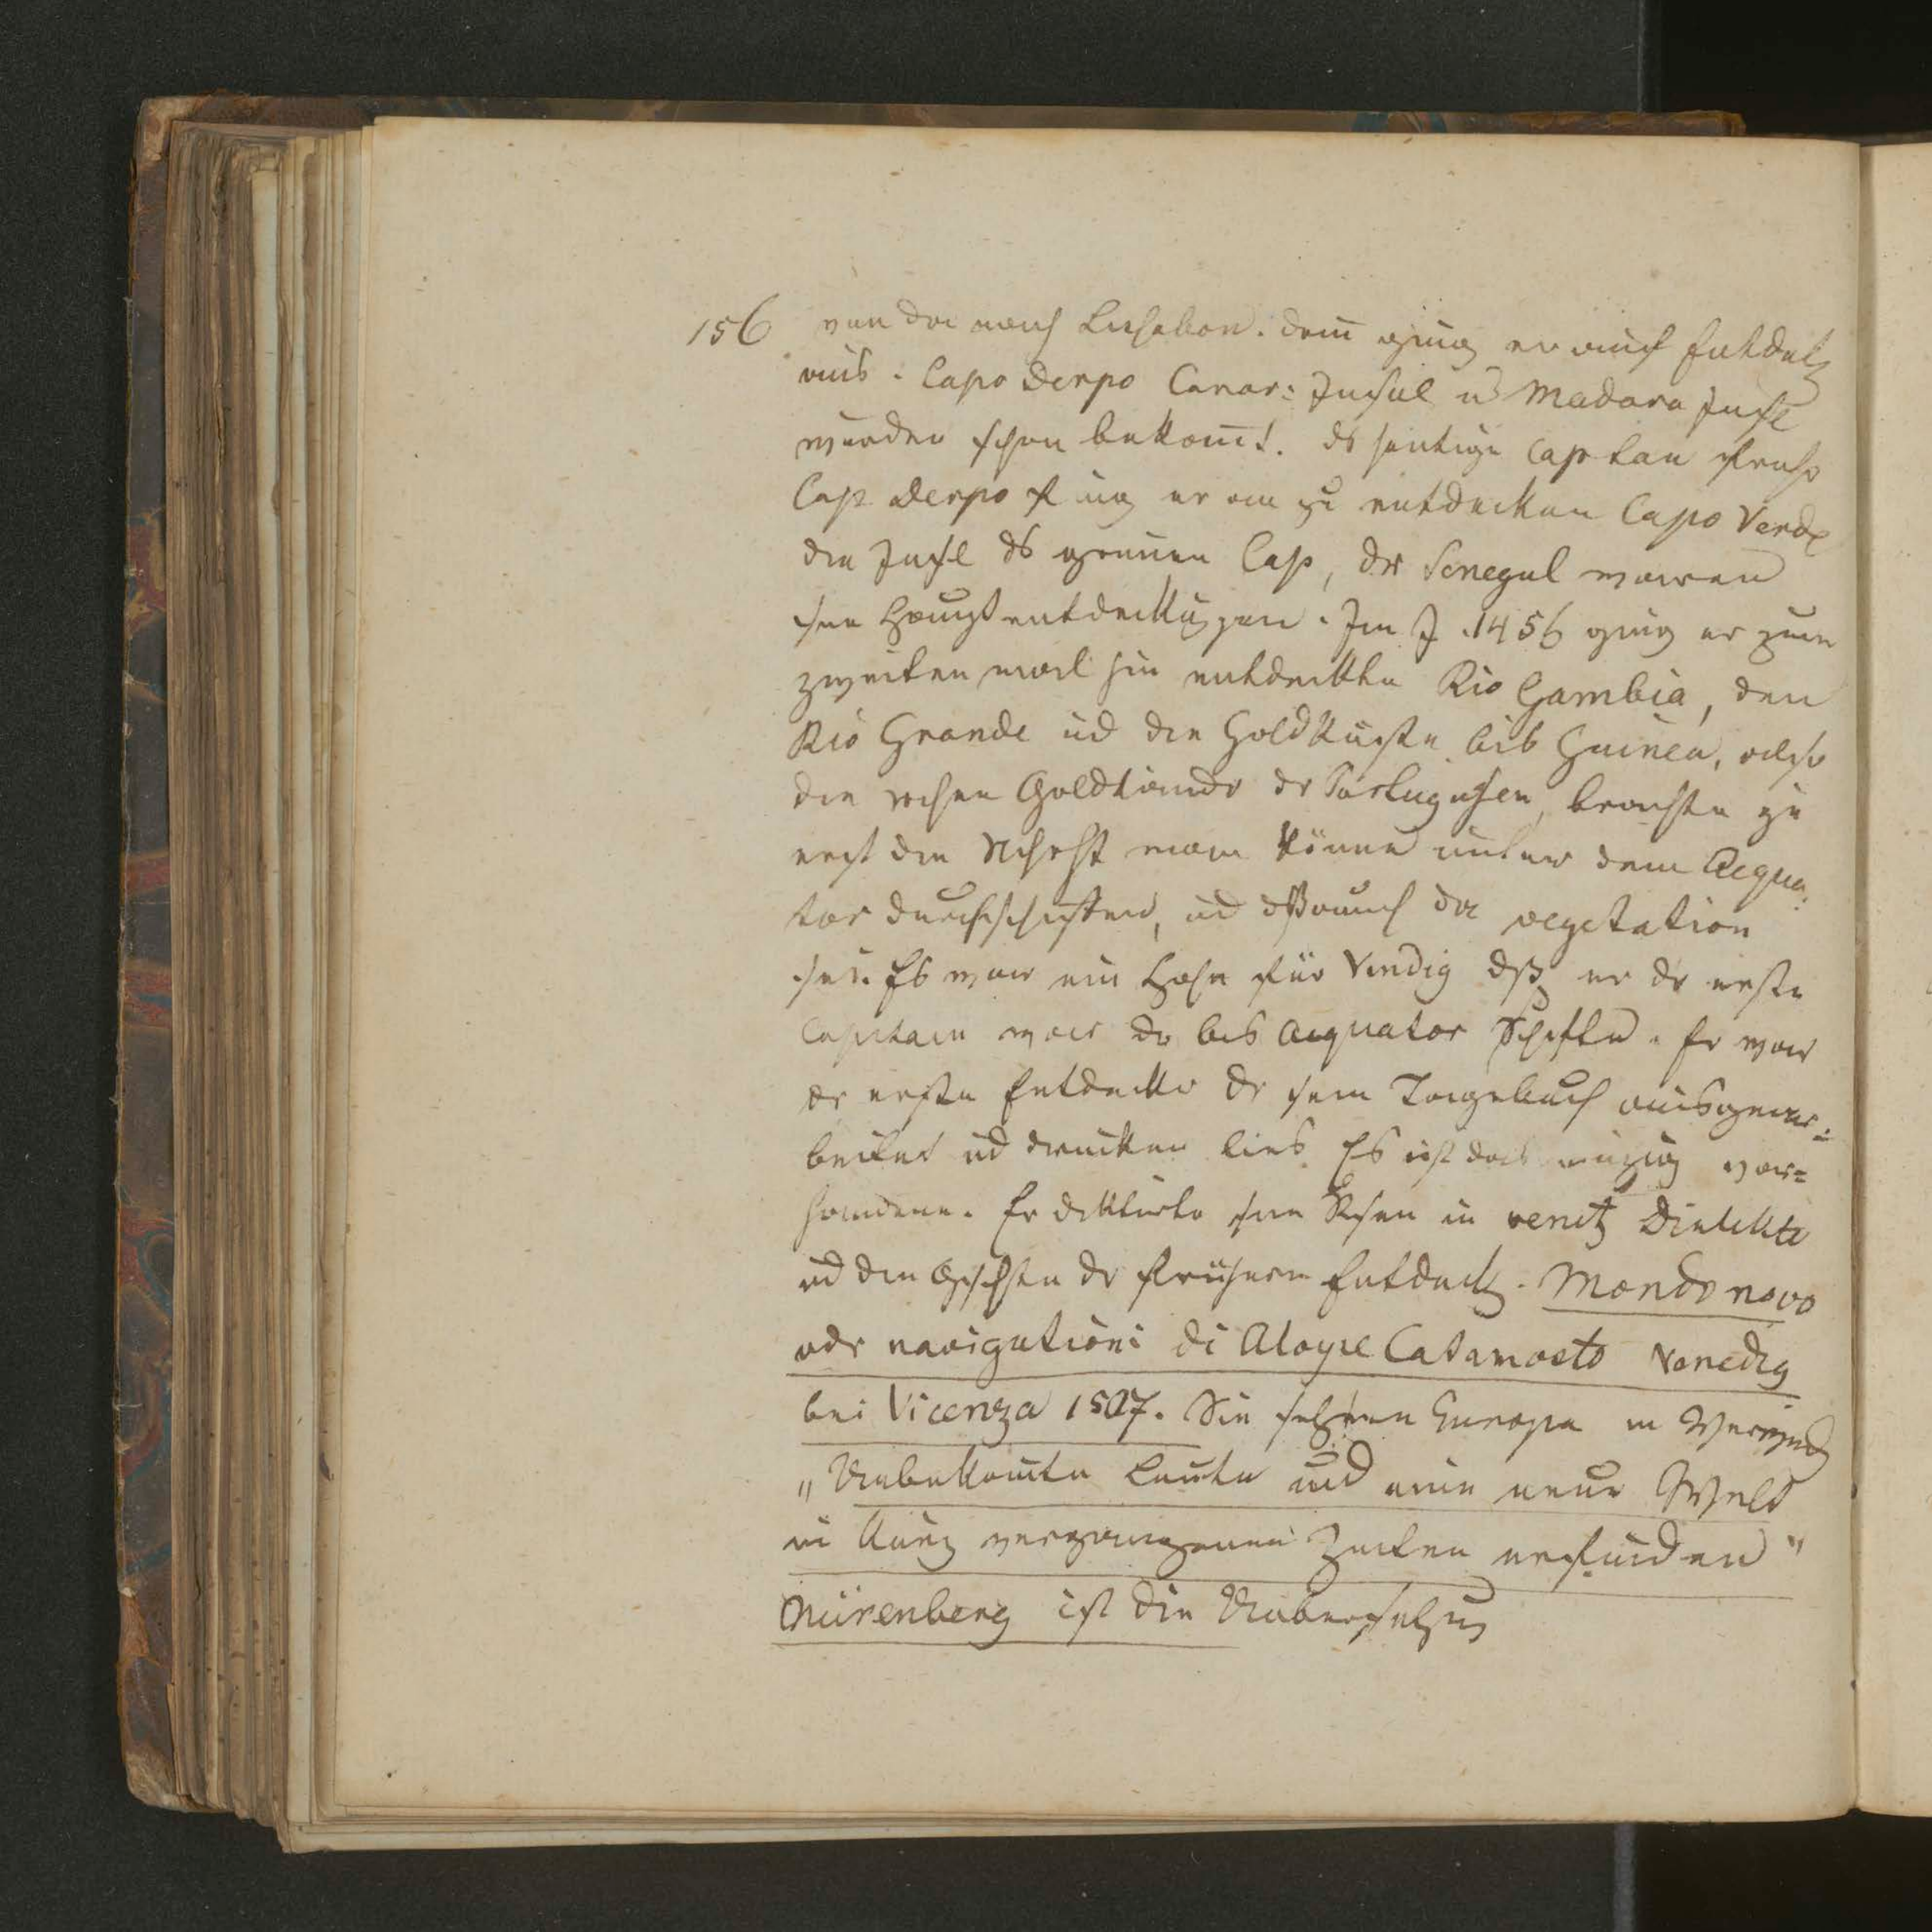 156 von da nach Lissabon. dann ging er auf Entdek
aus. Capo Derpo Canar: Insel u Madara Insel
wurden schon bekannt. ds heutige Cap
Cap Derpo fing er an zu entdecken Capo Verde
die Insel ds grünen Cap, der Senegal waren
sein Hauptentdekungen. Im J. 1456 ging er zum
zweiten mal hin entdeckte Rio Gambia, den
Rio Grande ud die Goldküste bis Guinea, also
die Goldländer der Portugiesen, brachte zu
erst die man könne unter dem Aequa:
tor durchschiffen, ud dß auch da vegetation
sei. Es war ein Ehre für Venedig dß er der erste
Capitain war der bis Aequator schifte. Er war
der erste Entdecker der sein Tagebuch ausgear:
beitet ud drucken lies. Es ist das einzig vor=
handene. Er diktirte seine Reisen in venetz Dialekte
ud die Gschichte der frühern Entdeck. Mondo novo
oder navigationi di Aloyse Catamosto Venedig
bei Vicenza 1507. Die Europa in
„Unbekannte Leute und eine neue Welt
in kurz vergangenen Zeiten erfunden"
Nürenberg ist die Uebersetzung